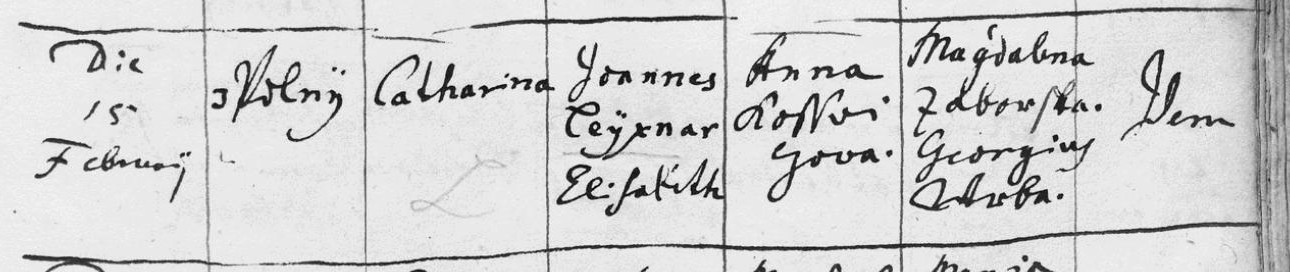 Die
15
Februarij
Polnÿ
Catharina
Joannes
Ceÿxnar
Elisabeth
Anna
Kossvi
gova.
Magdalena
Zaborska.
Georgius
Wrba.
Idem